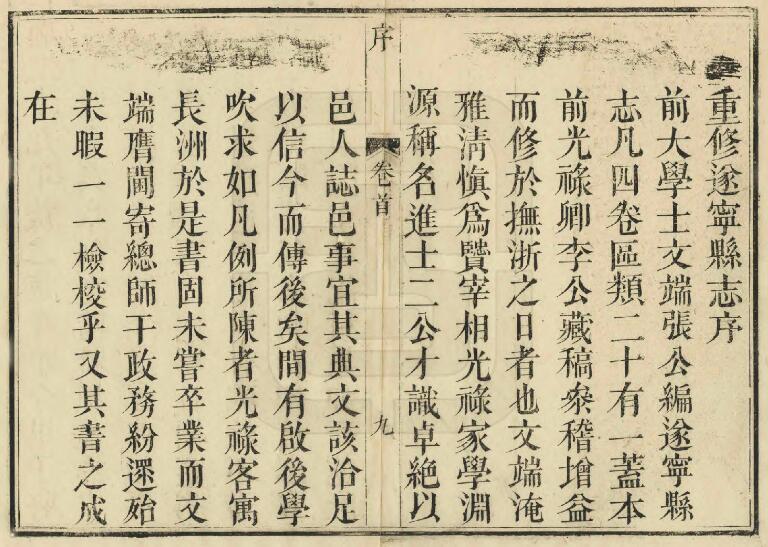 重修遂寧縣志序
前大學士文端張公編遂寧縣
志凡四卷區類二十有一蓋本
前光祿卿李公藏稿叅稽增益
而修於撫浙之日者也文端淹
雅淸愼爲賢宰相光祿家學淵
源稱名進士二公才識卓絕以
序
卷首
九
邑人誌邑事宜其典文該洽足
以信今而傳後矣間有啟後學
吹求如凡例所陳者光祿客寓
長洲於是書固未嘗卒業而文
端膺閫寄總師干政務紛還殆
未暇一一檢校乎又其書之成
在